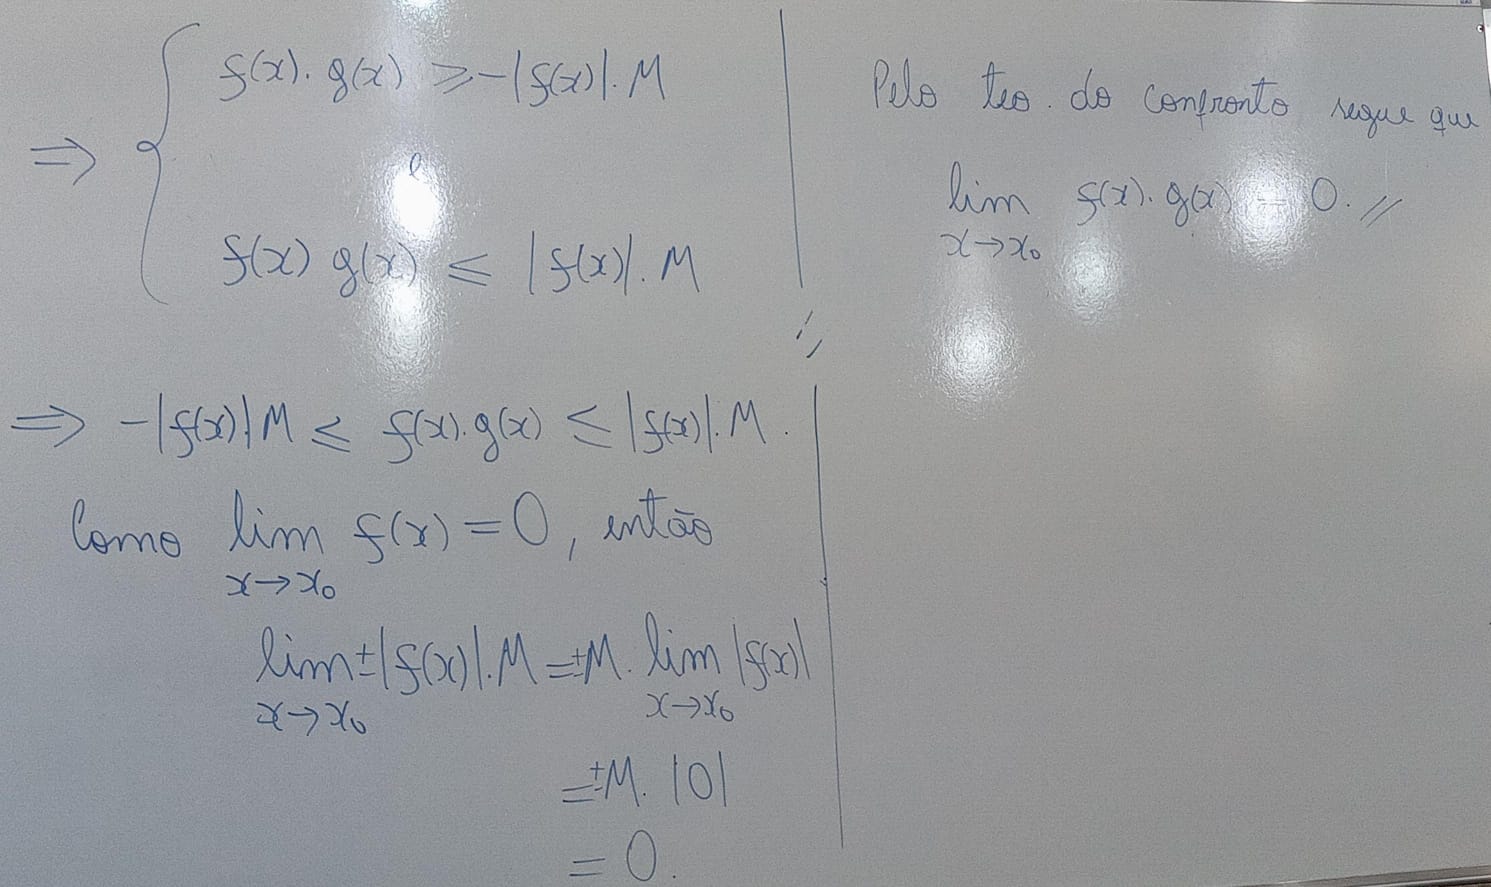 ⇒ { f(x). g(x) ≥ -|f(x)|. M
e
f(x) g(x) ≤ |f(x)|. M
⇒ -|f(x)|.M ≤ f(x). g(x) ≤ |f(x)|. M.
Como lim f(x) = 0, então
x→x₀
lim ±|f(x)|. M = ±M. lim |f(x)|
x→x₀ x→x₀
= ±M. |0|
= 0.
Pelo teo. do confronto segue que
lim f(x). g(x) = 0. //
x→x₀